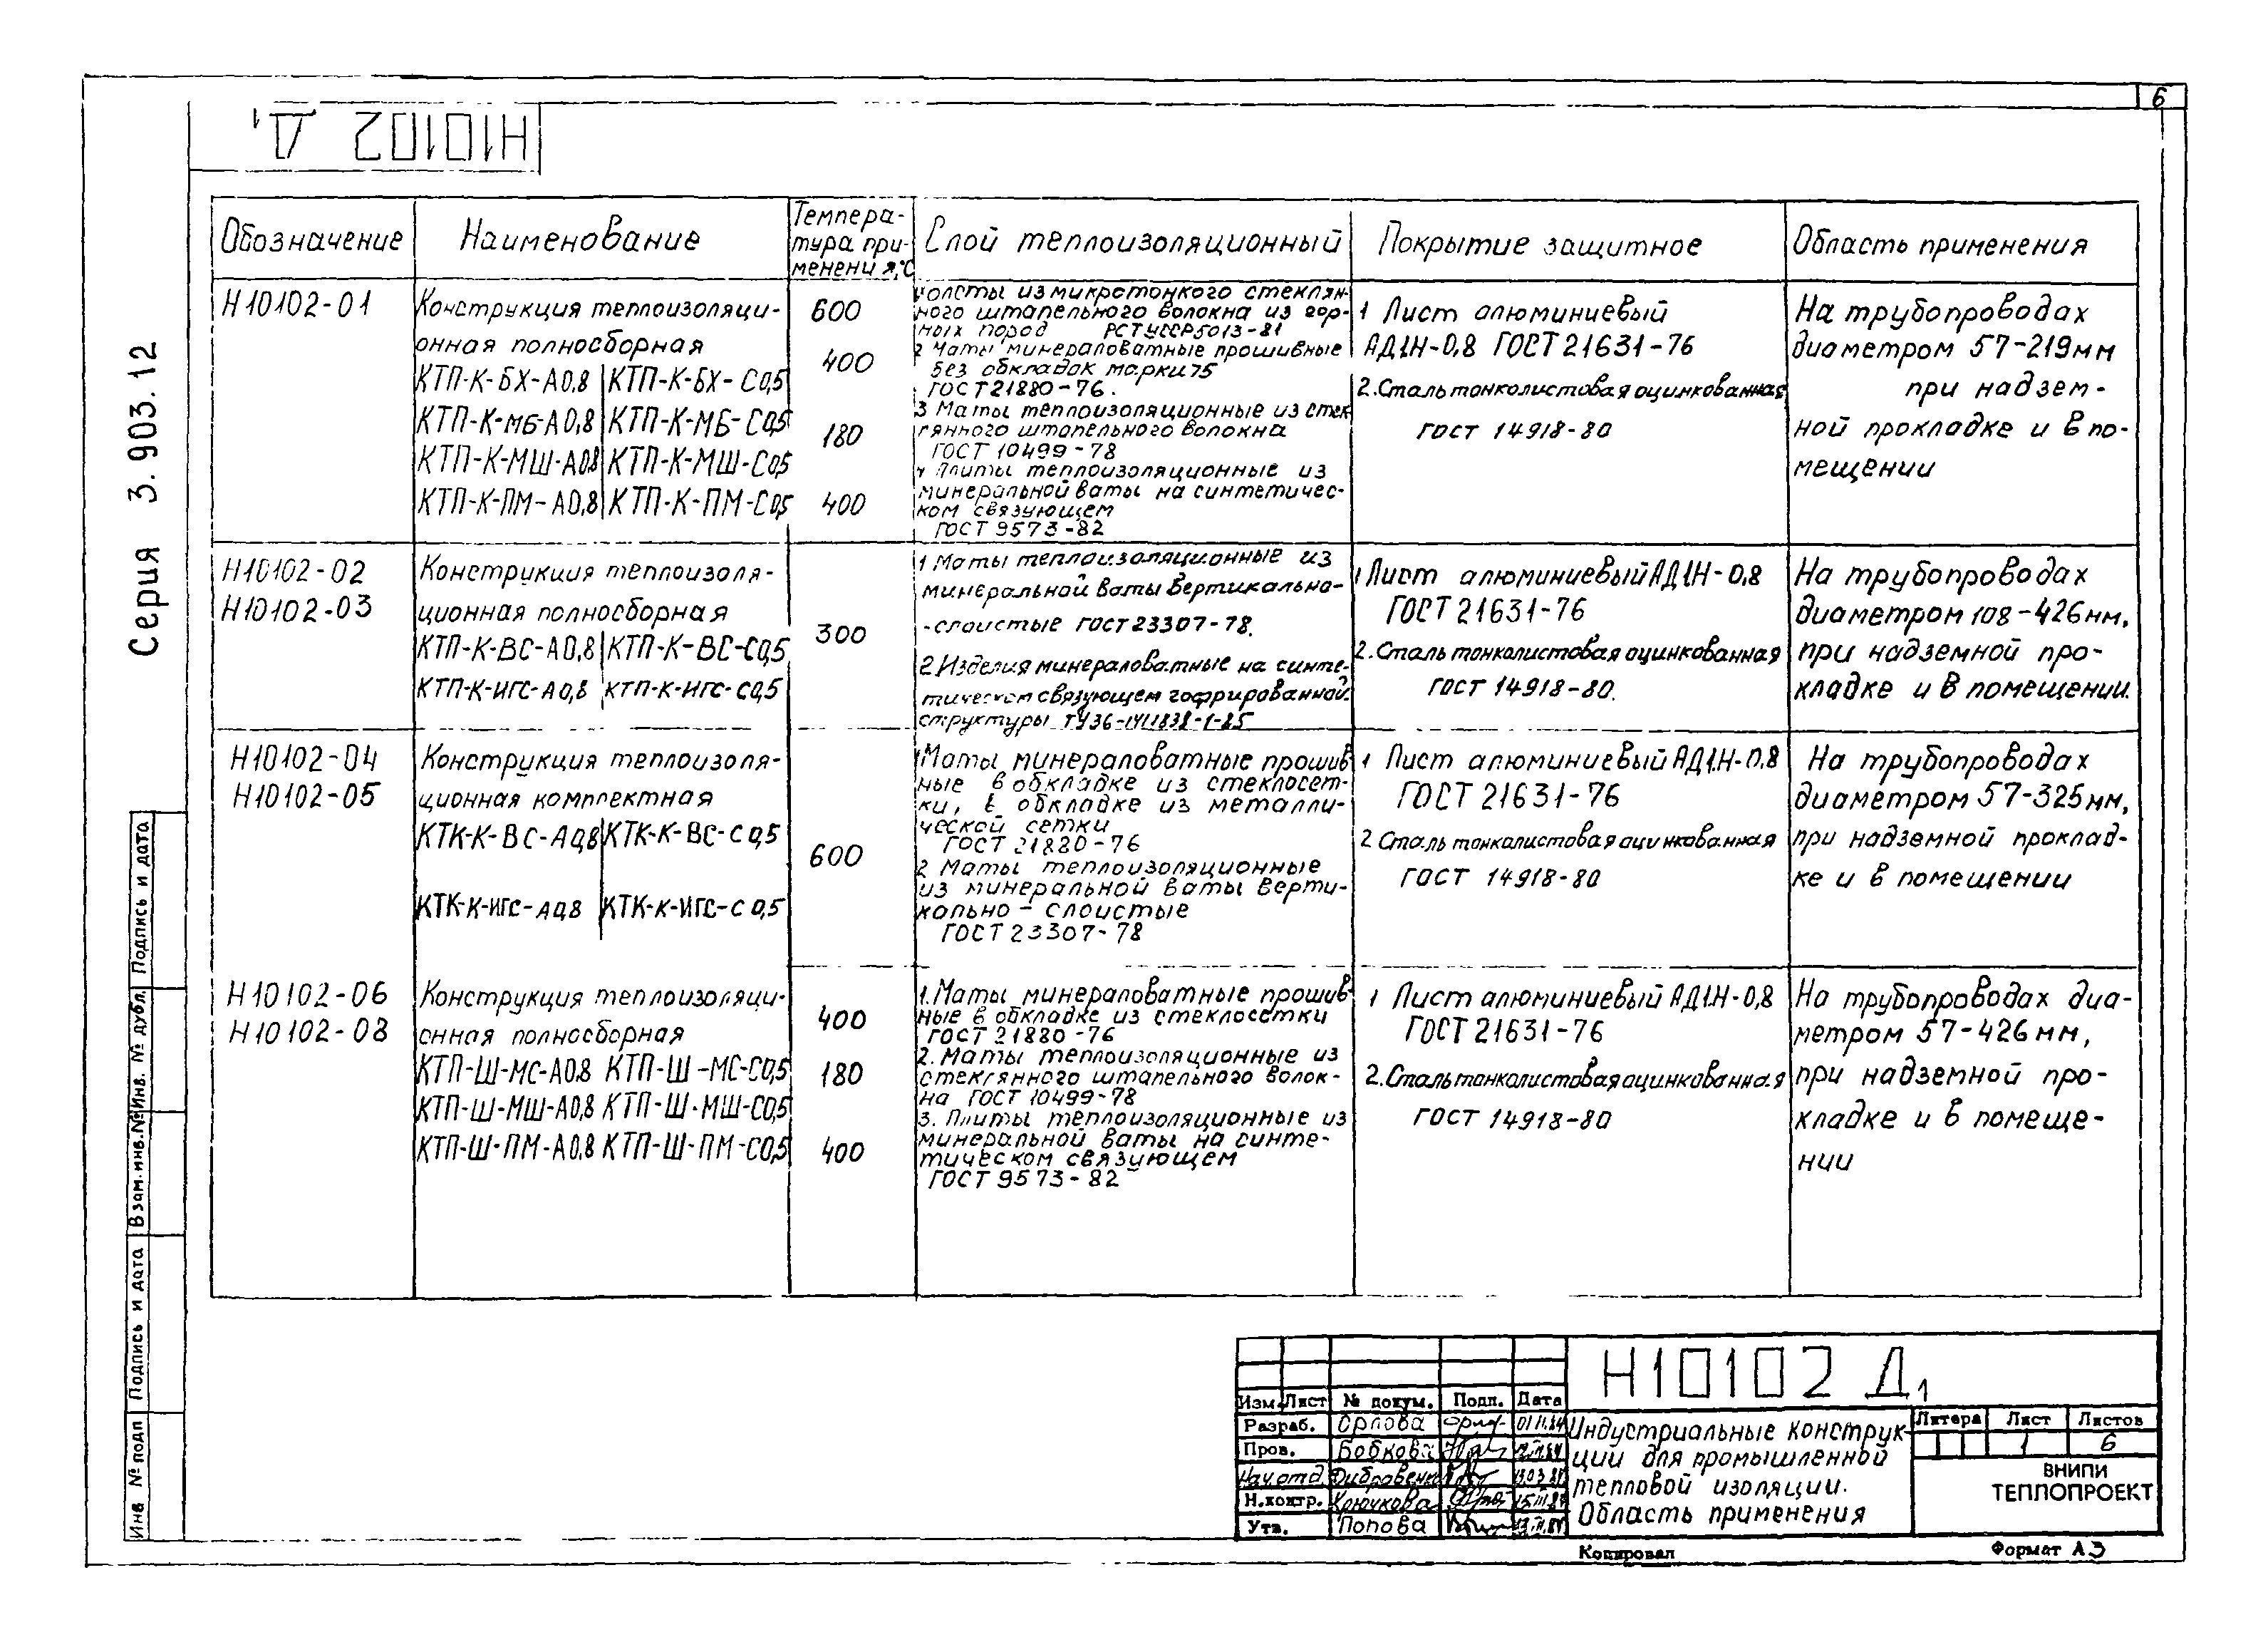 6
Н10102 Д1
Серия 3.903.12
Обозначение
Наименование
Темпера-
тура при-
менения,°С
Слой теплоизоляционный
Покрытие защитное
Область применения
Н10102-01
Конструкция теплоизоляци-
онная полносборная
КТП-К-БХ-А0,8 КТП-К-БХ-С0,5
КТП-К-МБ-А0,8 КТП-К-МБ-С0,5
КТП-К-МШ-А0,8 КТП-К-МШ-С0,5
КТП-К-ПМ-А0,8 КТП-К-ПМ-С0,5
600
400
180
400
холсты из микротонкого стеклян-
ного штапельного волокна из гор-
ных пород РСТ УССР 5013-81
2 Маты минераловатные прошивные
без обкладок марки 75
ГОСТ 21880-76.
3 Маты теплоизоляционные из стек-
лянного штапельного волокна
ГОСТ 10499-78
4 Плиты теплоизоляционные из
минеральной ваты на синтетичес-
ком связующем
ГОСТ 9573-82
1 Лист алюминиевый
АД1Н-0,8 ГОСТ 21631-76
2. Сталь тонколистовая оцинкованная
ГОСТ 14918-80
На трубопроводах
диаметром 57-219мм
при надзем-
ной прокладке и в по-
мещении
Н10102-02
Н10102-03
Конструкция теплоизоля-
ционная полносборная
КТП-К-ВС-А0,8 КТП-К-ВС-С0,5
КТП-К-ИГС-А0,8 КТП-К-ИГС-С0,5
300
1 Маты теплоизоляционные из
минеральной ваты вертикально-
-слоистые ГОСТ 23307-78.
2 Изделия минераловатные на синте-
тическом связующем гофрированной
структуры ТУ36-
1 Лист алюминиевый АД1Н-0,8
ГОСТ 21631-76
2. Сталь тонколистовая оцинкованная
ГОСТ 14918-80.
На трубопроводах
диаметром 108-426мм,
при надземной про-
кладке и в помещении.
Н10102-04
Н10102-05
Конструкция теплоизоля-
ционная комплектная
КТК-К-ВС-А0,8 КТК-К-ВС-С0,5
КТК-К-ИГС-А0,8 КТК-К-ИГС-С0,5
600
1 Маты минераловатные прошив-
ные в обкладке из стеклосет-
ки, в обкладке из металли-
ческой сетки
ГОСТ 21880-76
2 Маты теплоизоляционные
из минеральной ваты верти-
кально-слоистые
ГОСТ 23307-78
1 Лист алюминиевый АД1Н-0,8
ГОСТ 21631-76
2 Сталь тонколистовая оцинкованная
ГОСТ 14918-80
На трубопроводах
диаметром 57-325мм,
при надземной проклад-
ке и в помещении
Н10102-06
Н10102-08
Конструкция теплоизоляци-
онная полносборная
КТП-Ш-МС-А0,8 КТП-Ш-МС-С0,5
КТП-Ш-МШ-А0,8 КТП-Ш-МШ-С0,5
КТП-Ш-ПМ-А0,8 КТП-Ш-ПМ-С0,5
400
180
400
1. Маты минераловатные прошив-
ные в обкладке из стеклосетки
ГОСТ 21880-76
2. Маты теплоизоляционные из
стеклянного штапельного волок-
на ГОСТ 10499-78
3. Плиты теплоизоляционные из
минеральной ваты на синте-
тическом связующем
ГОСТ 9573-82
1 Лист алюминиевый АД1Н-0,8
ГОСТ 21631-76
2. Сталь тонколистовая оцинкованная
ГОСТ 14918-80
На трубопроводах диа-
метром 57-426мм,
при надземной про-
кладке и в помеще-
нии
Инв № подл Подпись и дата Взам.инв.№ Инв. № дубл. Подпись и дата
Изм. Лист № докум. Подп. Дата
Разраб. Орлова
Пров. Бобкова
Нач.отд.
Н.контр. Крючкова
Утв. Попова
Н10102 Д1
Индустриальные конструк-
ции для промышленной
тепловой изоляции.
Область применения
Литера Лист Листов
1 6
ВНИПИ
ТЕПЛОПРОЕКТ
Копировал
Формат А3